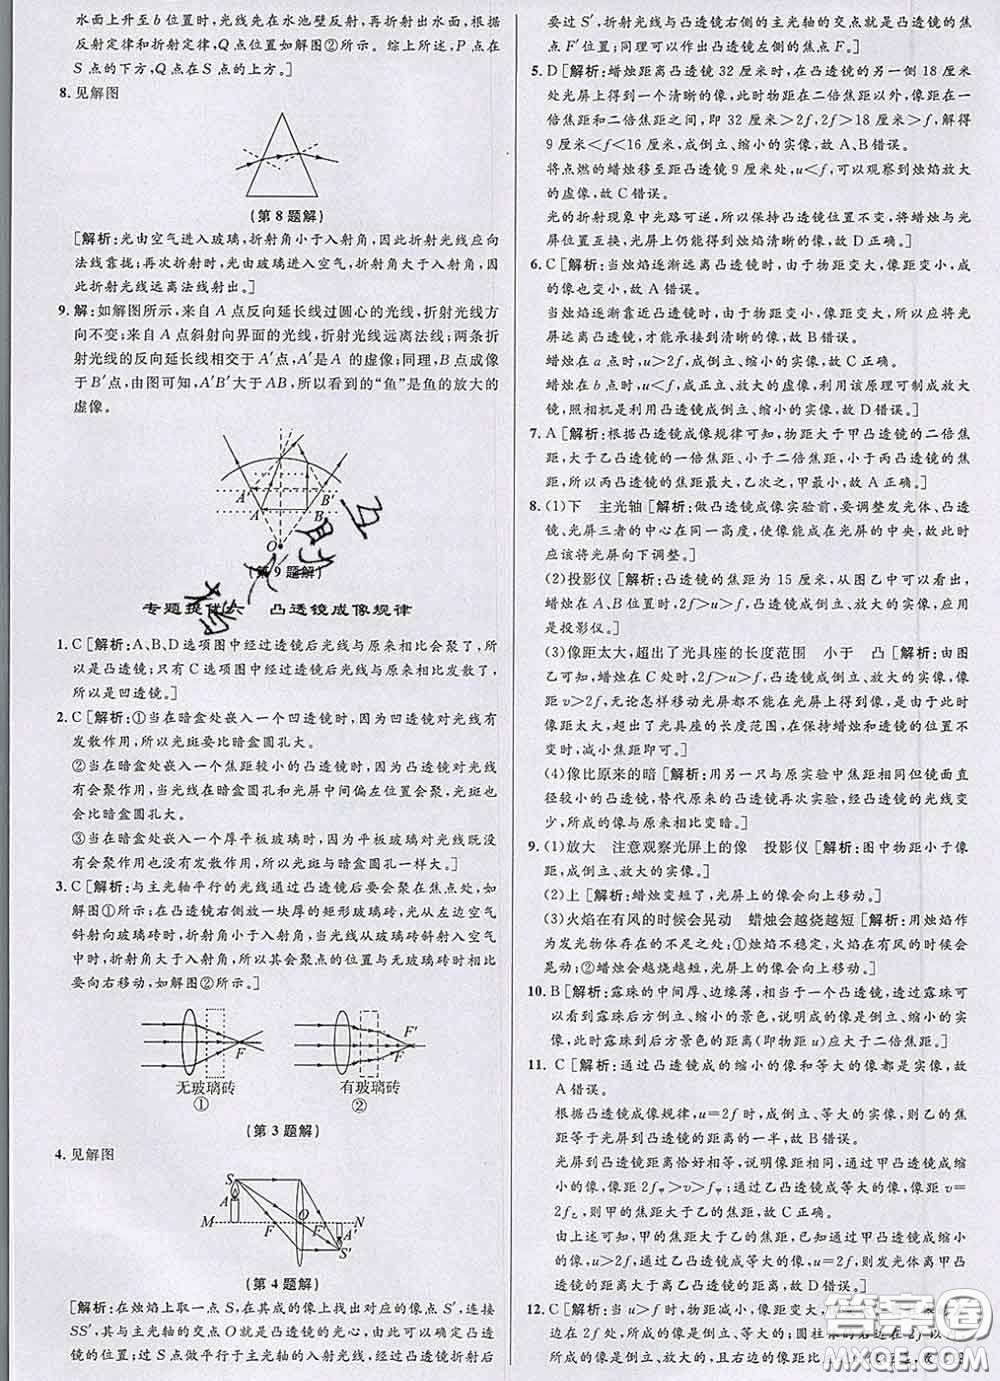 水面上升至 b 位置时,光线先在水池壁反射,再折射出水面,根据
反射定律和折射定律,Q 点位置如解图②所示。综上所述,P 点在
S 点的下方,Q 点在 S 点的上方。]
8. 见解图
(第 8 题解)
[解析:光由空气进入玻璃,折射角小于入射角,因此折射光线应向
法线靠拢;再次折射时,光由玻璃进入空气,折射角大于入射角,因
此折射光线远离法线射出。]
9. 解:如解图所示,来自 A 点反向延长线过圆心的光线,折射光线
方向不变;来自 A 点斜射向界面的光线,折射光线远离法线;两条折
射光线的反向延长线相交于 A′点,A′是 A 的虚像;同理,B 点成像
于 B′点,由图可知,A′B′大于 AB,所以看到的“鱼”是鱼的放大的
虚像。
A′ B′
A B
O
(第 9 题解)
专题提优六 凸透镜成像规律
1. C [解析:A、B、D 选项图中经过透镜后光线与原来相比会聚了,所
以是凸透镜;只有 C 选项图中经过透镜后光线与原来相比发散了,
所以是凹透镜。]
2. C [解析:①当在暗盒处嵌入一个凹透镜时,因为凹透镜对光线有
有发散作用,所以光斑要比暗盒圆孔大。
②当在暗盒处嵌入一个焦距较小的凸透镜时,因为凸透镜对光线
有会聚作用,会聚点在暗盒圆孔和光屏中间偏左位置会聚,光斑也
会比暗盒圆孔大。
③当在暗盒处嵌入一个厚平板玻璃时,因为平板玻璃对光线既没
有会聚作用也没有发散作用,所以光斑与圆孔一样大。]
3. C [解析:与主光轴平行的光线通过凸透镜后要会聚在焦点处,如
解图①所示;在凸透镜右侧放一块厚的矩形玻璃砖,光从左边空气
斜射向玻璃砖时,折射角小于入射角,当光线从玻璃砖斜射入空气
中时,折射角大于入射角,所以其会聚点的位置与无玻璃砖时相比
要向右移动,如解图②所示。]
F F F′
无玻璃砖 有玻璃砖
① ②
(第 3 题解)
4. 见解图
S
A
M O F′ N
F A′
S′
(第 4 题解)
[解析:在烛焰上取一点 S,在其成的像上找出对应的像点 S′,连接
SS′,其与主光轴的交点 O 就是凸透镜的光心,由此可确定凸透
镜的位置;过 S 点做平行于主光轴的入射光线,经凸透镜折射后
要过 S′,折射光线与凸透镜右侧的主光轴的交点就是凸透镜的焦
点 F′位置;同理可以作出凸透镜左侧的焦点 F。]
5. D [解析:蜡烛距离凸透镜 32 厘米时,在凸透镜的另一侧 18 厘米
处光屏上得到一个清晰的像,此时物距在二倍焦距以外,像距在一
倍焦距和二倍焦距之间,即 32 厘米>2f,2f>18 厘米>f,解得
9 厘米<f<16 厘米,成倒立、缩小的实像,故 A、B 错误。
将点燃的蜡烛移至距凸透镜 9 厘米处,u<f,可以观察到烛焰放大
的虚像,故 C 错误。
光的折射现象中光路可逆,所以保持凸透镜位置不变,将蜡烛与光
屏位置互换,光屏上仍能得到倒立的烛焰清晰的像,故 D 正确。]
6. C [解析:当烛焰逐渐远离凸透镜时,由于物距变大,像距变小,成
的像也变小,故 A 错误。
当烛焰逐渐靠近凸透镜时,由于物距变小,像距变大,所以应将光
屏远离凸透镜,才能承接到清晰的像,故 B 错误。
蜡烛在 a 点时,u>2f,成倒立、缩小的实像,故 C 正确。
蜡烛在 b 点时,u<f,成正立、放大的虚像,利用该原理可制成放大
镜,照相机是利用凸透镜成倒立、缩小的实像,故 D 错误。]
7. A [解析:根据凸透镜成像规律可知,物距大于甲凸透镜的二倍焦
距,大于乙凸透镜的一倍焦距、小于二倍焦距,小于丙凸透镜的焦
距,所以丙凸透镜的焦距最大,乙次之,甲最小,故 A 正确。]
8. (1)下 主光轴 [解析:做凸透镜成像实验前,要调整发光体、凸透
镜、光屏三者的中心在同一高度,使像能成在光屏的中央,故此时
应该将光屏向下调整。]
(2)投影仪 [解析:凸透镜的焦距为 15 厘米,从图乙中可以看出,
蜡烛在 A、B 位置时,在光屏上成倒立、放大的实像,应用
是投影仪。]
(3)像距太大,超出了光具座的长度范围 小于 凸 [解析:由图
乙可知,蜡烛在 C 处时,2f>u>f,成倒立、放大的实像,像
距 v>2f,无论怎样移动光屏都不能在光屏上得到像,是由于
像距太大,超出了光具座的长度范围,在保持蜡烛和透镜的位置不
变时,减小焦距即可。]
(4)像比原来的暗 [解析:用另一只与原实验中焦距相同但镜面直
径较小的凸透镜,替代原来的凸透镜再次实验,经凸透镜的光线变
少,所成的像与原来相比变暗。]
9. (1)放大 注意观察光屏上的像 投影仪 [解析:图中物距小于像
距,成倒立、放大的实像。]
(2)上 [解析:蜡烛变短了,光屏上的像会向上移动。]
(3)火焰在有风的时候会晃动 蜡烛会越烧越短 [解析:用烛焰作
为发光物体存在的不足之处:①烛焰不稳定,火焰在有风的时候会
晃动;②蜡烛会越烧越短,光屏上的像会向上移动。]
10. B [解析:露珠的中间厚、边缘薄,相当于一个凸透镜,透过露珠可
以看到露珠后方倒立、缩小的景色,说明成的像是倒立、缩小的实
像,此时露珠到后方景色的距离(即物距 u)应大于二倍焦距。]
11. C [解析:通过凸透镜成的缩小的像和等大的像都是实像,故
A 错误。
根据凸透镜成像规律,u=2f 时,成倒立、等大的实像,则乙的焦
距等于光屏到凸透镜的距离的一半,故 B 错误。
光屏到凸透镜距离恰好相等,说明像距相等,通过甲凸透镜成缩
小的像,像距 2f甲>v>f甲;通过乙凸透镜成等大的像,像距 v=
2f乙,则甲的焦距大于乙的焦距,故 C 正确。
由上述可知,甲的焦距大于乙的焦距,已知通过甲凸透镜成缩小
的像,u>2f,通过乙凸透镜成等大的像,u=2f,则发光体离甲凸
透镜的距离大于离乙凸透镜的距离,故 D 错误。]
12. C [解析:当 u>f 时,物距减小,像距变大,像变大;
边在 2f 处,所成的像是倒立、等大的;圆柱体的右边在 2f 以
所成的像是倒立、放大的,且右边的像距比
答案圈
MXQE.COM